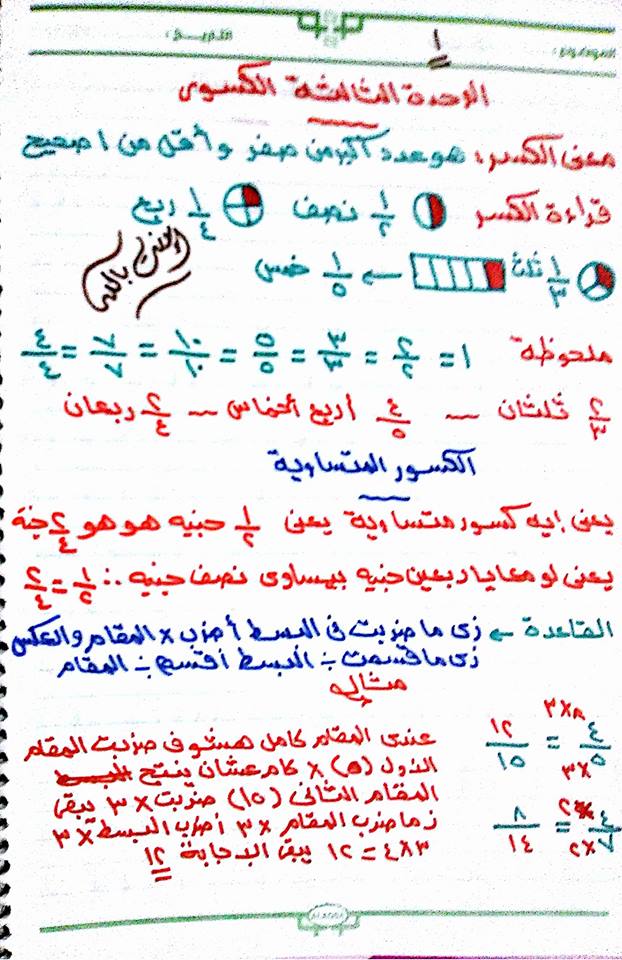 الموضوع: التاريخ:
١
الوحدة الثالثة الكسور
معنى الكسر: هو عدد أكبر من صفر وأقل من ١ صحيح
قراءة الكسر ١/٢ نصف ١/٤ ربع
١/٣ ثلث ← ١/٥ خمس
ملحوظة ١ = ٢/٢ = ٣/٣ = ٥/٥ = ١٠/١٠ = ٧/٧ = ٤/٤
٢/٣ ثلثان ـ ٤/٥ أربع أخماس ـ ٢/٤ ربعان
الكسور المتساوية
يعنى إيه كسور متساوية يعنى ١/٢ جنيه هو هو ٢/٤ جنة
يعنى لو معايا ربعين جنيه بيساوى نصف جنيه ∴ ١/٢ = ٢/٤
القاعدة ← زى ما ضربت فى البسط أضرب × المقام والعكس
زى ما قسمت ÷ البسط أقسم ÷ المقام
مثال
٤/٥ = ١٢/١٥ ٣× ٣×
عندى المقام كامل هشوف ضربت المقام
الأول (٥) × كام عشان ينتج البسط
المقام الثانى (١٥) ضربت × ٣ يبقى
زما ضرب المقام ×٣ أضرب البسط ×٣
٣×٤ = ١٢ يبقى الإجابة ١٢
٤/٧ = ٨/١٤ ٢× ٢×